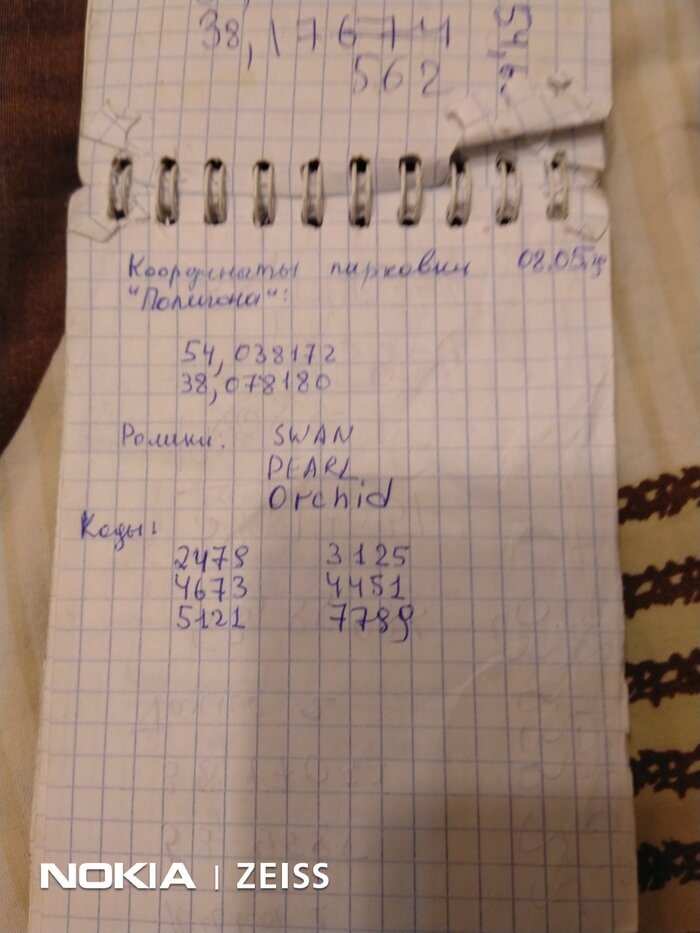 38,17674
562
54,6
Координаты парковки 08.05.19
"Полигона":
54,038172
38,078180
Ролики: SWAN
PEARL
Orchid
Коды:
2479 3125
4673 4451
5121 7789
NOKIA | ZEISS